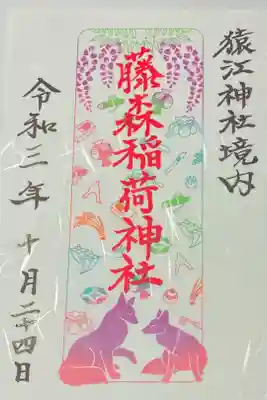 猿江神社境内
藤森稲荷神社
令和三年 十月二十四日